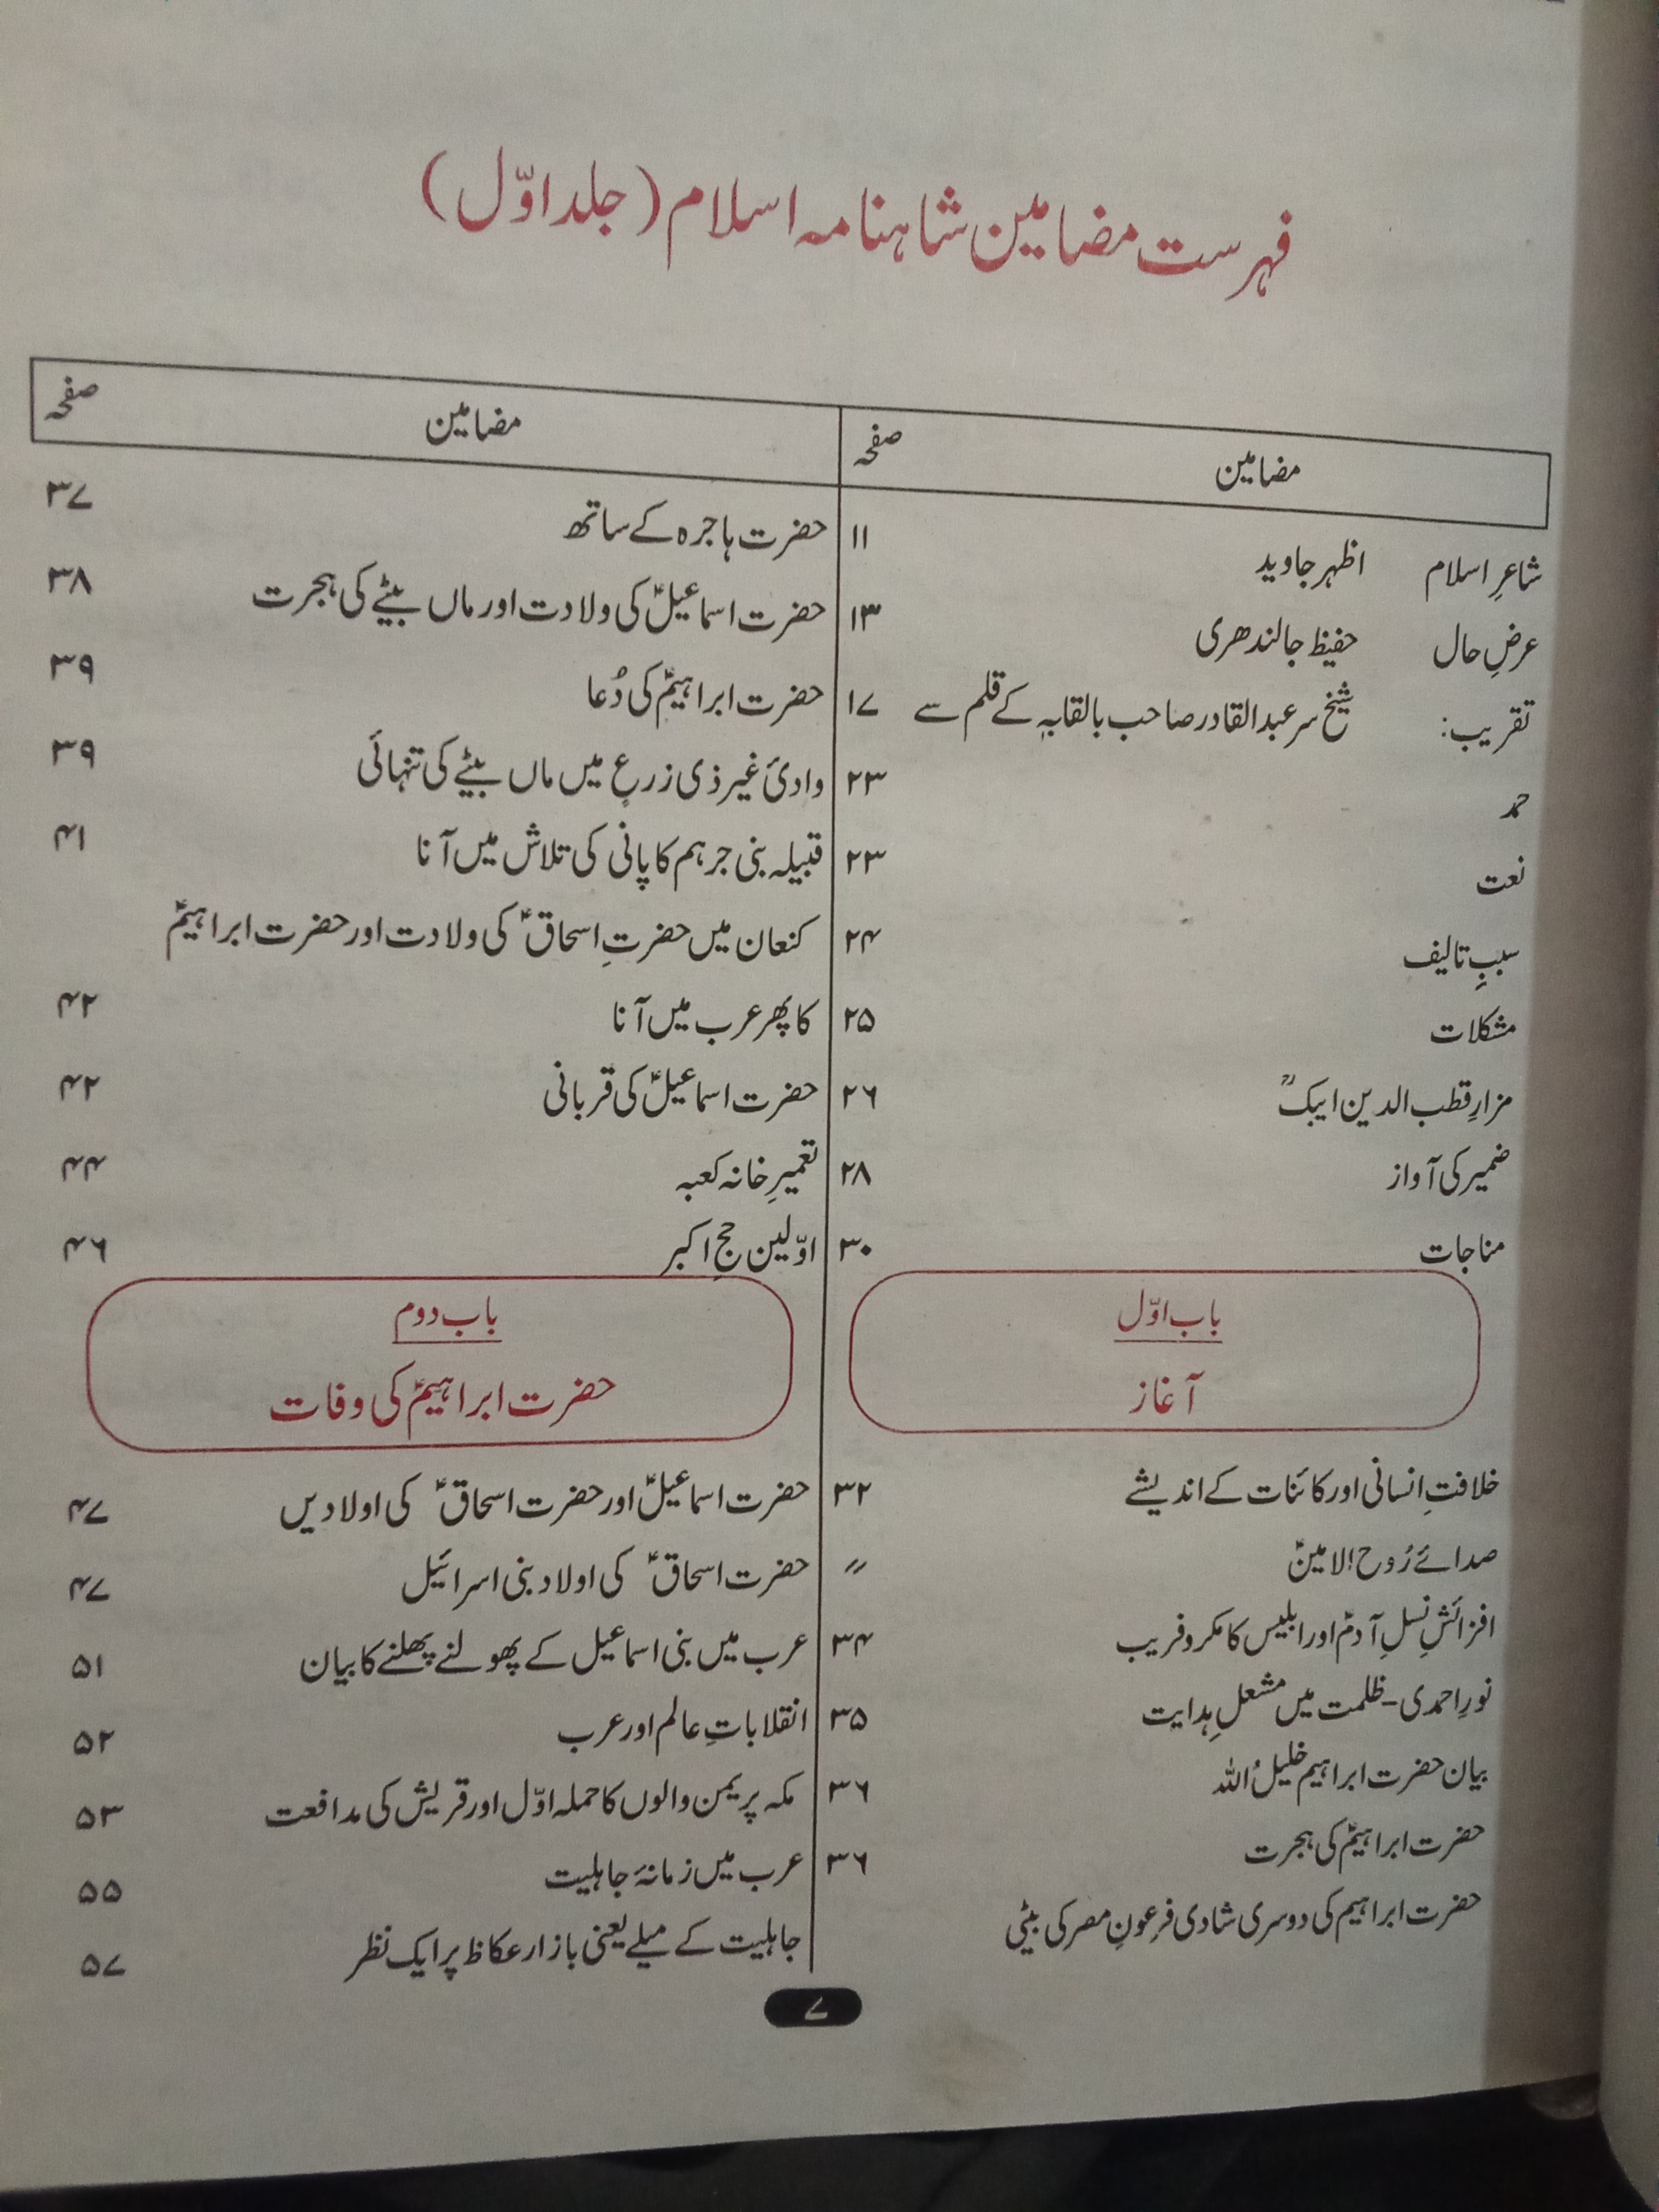 فہرست مضامین شاہنامہ اسلام (جلد اوّل)
مضامین صفحہ
شاعرِ اسلام اظہر جاوید ۱۱
عرضِ حال حفیظ جالندھری ۱۳
تقریب: شیخ سر عبدالقادر صاحب بالقابہٖ کے قلم سے ۱۷
حمد ۲۳
نعت ۲۳
سببِ تالیف ۲۴
مشکلات ۲۵
مزارِ قطب الدین ایبکؒ ۲۶
ضمیر کی آواز ۲۸
مناجات ۳۰
باب اوّل
آغاز
خلافتِ انسانی اور کائنات کے اندیشے ۳۲
صدائے رُوح الامینؑ 〃
افزائشِ نسلِ آدمؑ اور ابلیس کا مکر و فریب ۳۴
نورِ احمدی - ظلمت میں مشعلِ ہدایت ۳۵
بیان حضرت ابراہیم خلیلُ اللہ ۳۶
حضرت ابراہیمؑ کی ہجرت ۳۶
حضرت ابراہیم کی دوسری شادی فرعونِ مصر کی بیٹی
مضامین صفحہ
حضرت ہاجرہ کے ساتھ ۳۷
حضرت اسماعیلؑ کی ولادت اور ماں بیٹے کی ہجرت ۳۸
حضرت ابراہیمؑ کی دُعا ۳۹
وادیٔ غیر ذی زرع میں ماں بیٹے کی تنہائی ۳۹
قبیلہ بنی جرہم کا پانی کی تلاش میں آنا ۴۱
کنعان میں حضرتِ اسحاقؑ کی ولادت اور حضرت ابراہیمؑ
کا پھر عرب میں آنا ۴۲
حضرت اسماعیلؑ کی قربانی ۴۲
تعمیرِ خانہ کعبہ ۴۴
اوّلین حجِ اکبر ۴۶
باب دوم
حضرت ابراہیمؑ کی وفات
حضرت اسماعیلؑ اور حضرت اسحاقؑ کی اولادیں ۴۷
حضرت اسحاقؑ کی اولاد بنی اسرائیل ۴۷
عرب میں بنی اسماعیل کے پھولنے پھلنے کا بیان ۵۱
انقلاباتِ عالم اور عرب ۵۲
مکہ پر یمن والوں کا حملہ اوّل اور قریش کی مدافعت ۵۳
عرب میں زمانۂ جاہلیت ۵۵
جاہلیت کے میلے یعنی بازار عکاظ پر ایک نظر ۵۷
۷